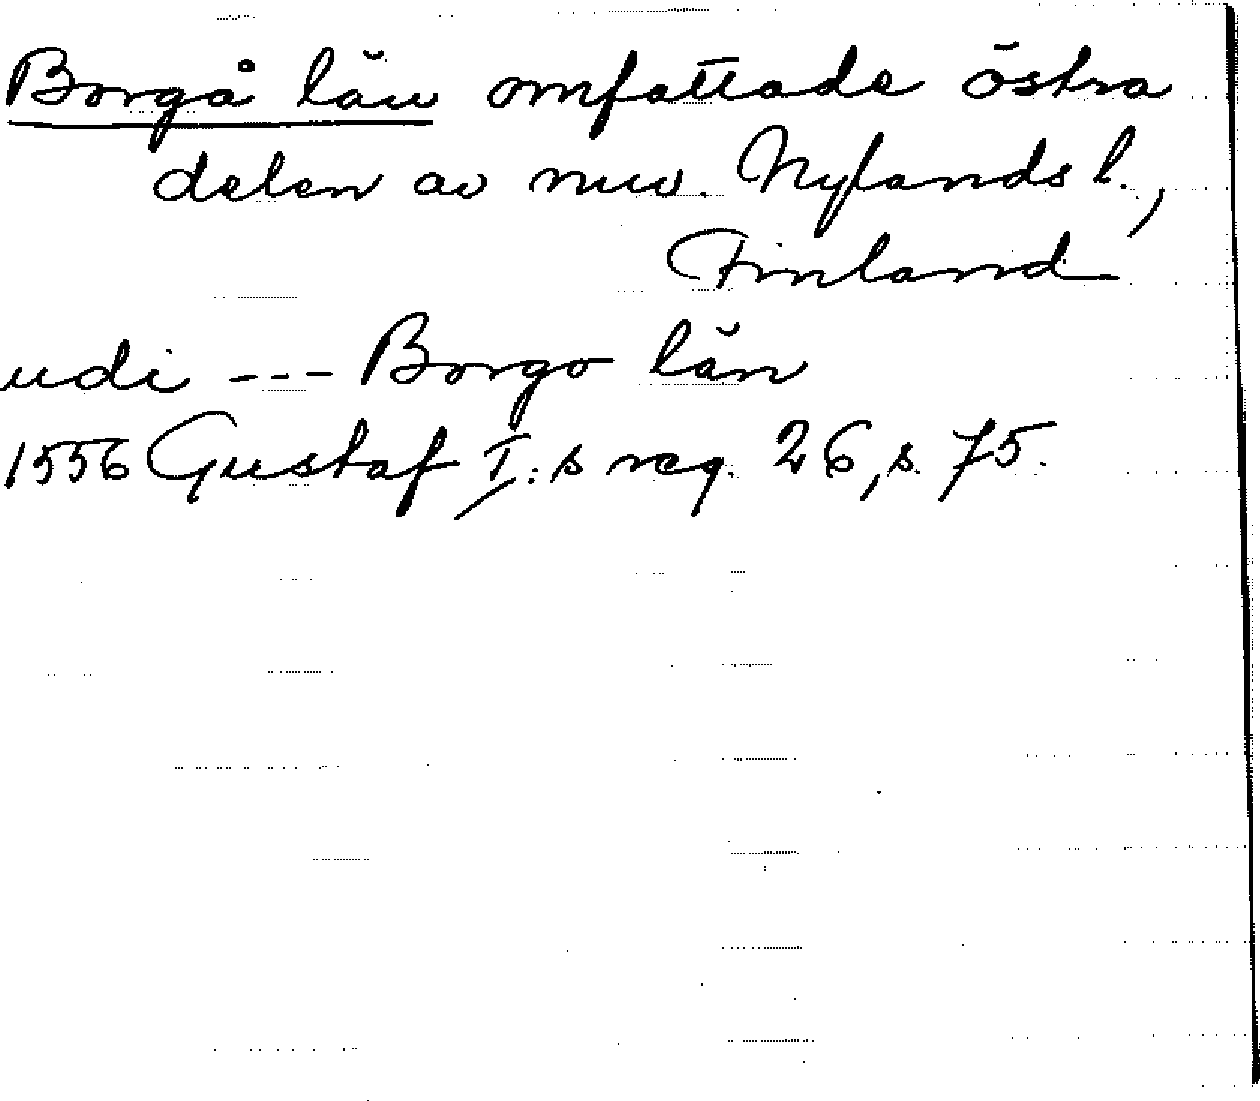 Borgå län omfattade östra
delen av nuv. Nylands l.,
Finland
udi --- Borgo län
1556 Gustaf I:s reg. 26, s. 75.